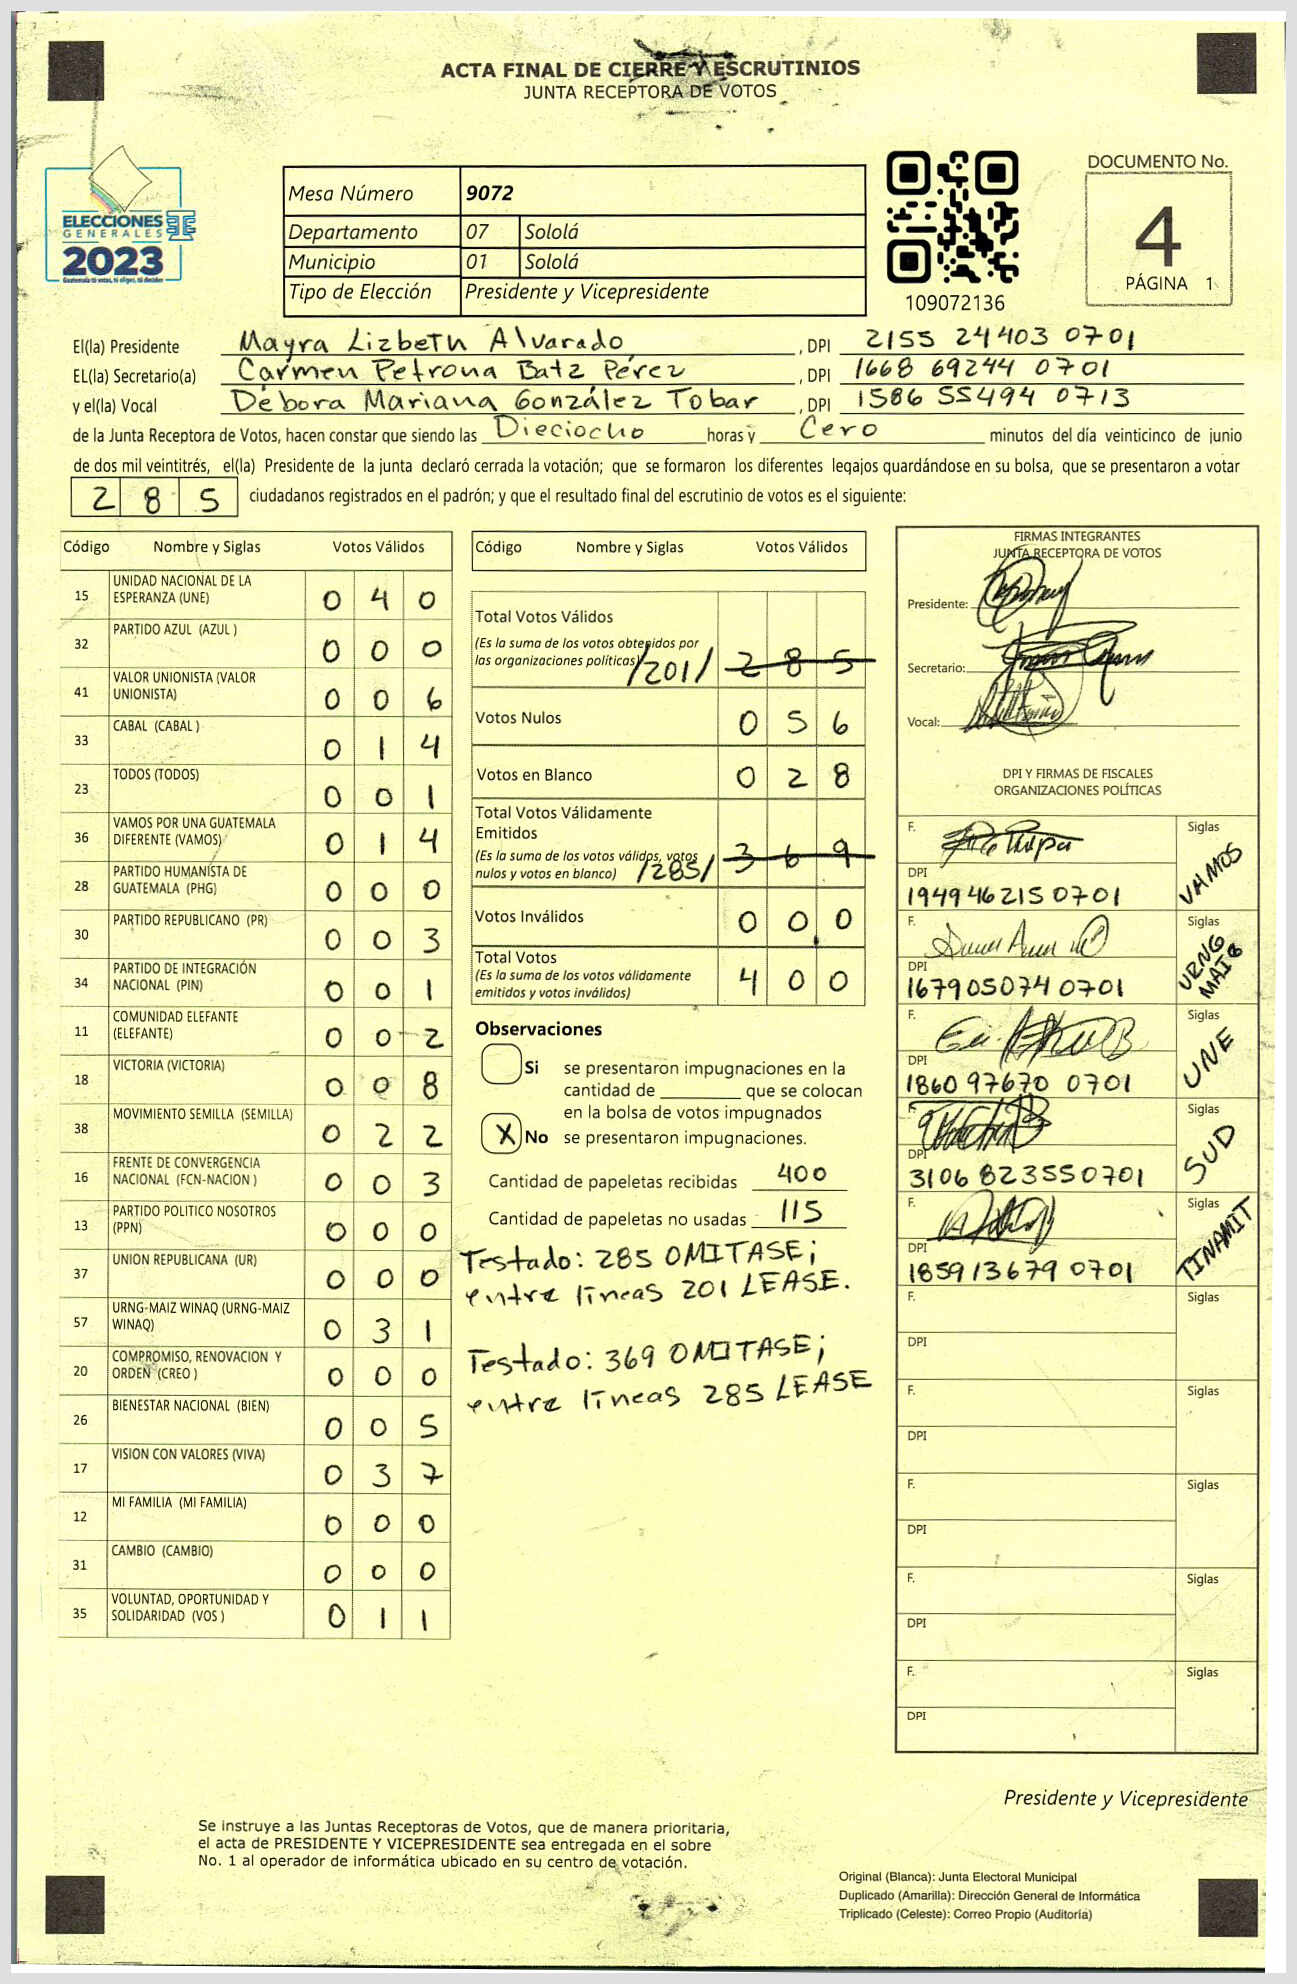 ACTA FINAL DE CIERRE Y ESCRUTINIOS
JUNTA RECEPTORA DE VOTOS
ELECCIONES
GENERALES
2023
Guatemala tú votas, tú eliges, tú decides
Mesa Número 9072
Departamento 07 Sololá
Municipio 01 Sololá
Tipo de Elección Presidente y Vicepresidente
109072136
DOCUMENTO No.
4
PÁGINA 1
El(la) Presidente Mayra Lizbeth Alvarado, DPI 2155 24403 0701
EL(la) Secretario(a) Carmen Petrona Batz Pérez, DPI 1668 69244 0701
y el(la) Vocal Débora Mariana González Tobar, DPI 1586 55494 0713
de la Junta Receptora de Votos, hacen constar que siendo las Dieciocho horas y Cero minutos del día veinticinco de junio
de dos mil veintitrés, el(la) Presidente de la junta declaró cerrada la votación; que se formaron los diferentes legajos guardándose en su bolsa, que se presentaron a votar
285 ciudadanos registrados en el padrón; y que el resultado final del escrutinio de votos es el siguiente:
Código Nombre y Siglas Votos Válidos
15 UNIDAD NACIONAL DE LA ESPERANZA (UNE) 0 4 0
32 PARTIDO AZUL (AZUL ) 0 0 0
41 VALOR UNIONISTA (VALOR UNIONISTA) 0 0 6
33 CABAL (CABAL ) 0 1 4
23 TODOS (TODOS) 0 0 1
36 VAMOS POR UNA GUATEMALA DIFERENTE (VAMOS) 0 1 4
28 PARTIDO HUMANISTA DE GUATEMALA (PHG) 0 0 0
30 PARTIDO REPUBLICANO (PR) 0 0 3
34 PARTIDO DE INTEGRACIÓN NACIONAL (PIN) 0 0 1
11 COMUNIDAD ELEFANTE (ELEFANTE) 0 0 2
18 VICTORIA (VICTORIA) 0 0 8
38 MOVIMIENTO SEMILLA (SEMILLA) 0 2 2
16 FRENTE DE CONVERGENCIA NACIONAL (FCN-NACION ) 0 0 3
13 PARTIDO POLITICO NOSOTROS (PPN) 0 0 0
37 UNION REPUBLICANA (UR) 0 0 0
57 URNG-MAIZ WINAQ (URNG-MAIZ WINAQ) 0 3 1
20 COMPROMISO, RENOVACION Y ORDEN (CREO ) 0 0 0
26 BIENESTAR NACIONAL (BIEN) 0 0 5
17 VISION CON VALORES (VIVA) 0 3 7
12 MI FAMILIA (MI FAMILIA) 0 0 0
31 CAMBIO (CAMBIO) 0 0 0
35 VOLUNTAD, OPORTUNIDAD Y SOLIDARIDAD (VOS ) 0 1 1
Código Nombre y Siglas Votos Válidos
Total Votos Válidos
(Es la suma de los votos obtenidos por
las organizaciones políticas) /201/ 2 8 5
Votos Nulos 0 5 6
Votos en Blanco 0 2 8
Total Votos Válidamente
Emitidos
(Es la suma de los votos válidos, votos
nulos y votos en blanco) /285/ 3 6 9
Votos Inválidos 0 0 0
Total Votos
(Es la suma de los votos válidamente
emitidos y votos inválidos) 4 0 0
Observaciones
Si se presentaron impugnaciones en la
cantidad de ________ que se colocan
en la bolsa de votos impugnados
X No se presentaron impugnaciones.
Cantidad de papeletas recibidas 400
Cantidad de papeletas no usadas 115
Testado: 285 OMITASE;
entre líneas 201 LEASE.
Testado: 369 OMITASE;
entre líneas 285 LEASE
FIRMAS INTEGRANTES
JUNTA RECEPTORA DE VOTOS
Presidente:
Secretario:
Vocal:
DPI Y FIRMAS DE FISCALES
ORGANIZACIONES POLÍTICAS
F. Siglas VAMOS
DPI
194946215 0701
F. Siglas URNG MAIZ
DPI
167905074 0701
F. Siglas UNE
DPI
1860 97670 0701
F. Siglas SUD
DPI
3106 823550701
F. Siglas TINAMIT
DPI
185913679 0701
F. Siglas
DPI
F. Siglas
DPI
F. Siglas
DPI
F. Siglas
DPI
F. Siglas
DPI
Presidente y Vicepresidente
Se instruye a las Juntas Receptoras de Votos, que de manera prioritaria,
el acta de PRESIDENTE Y VICEPRESIDENTE sea entregada en el sobre
No. 1 al operador de informática ubicado en su centro de votación.
Original (Blanca): Junta Electoral Municipal
Duplicado (Amarilla): Dirección General de Informática
Triplicado (Celeste): Correo Propio (Auditoría)